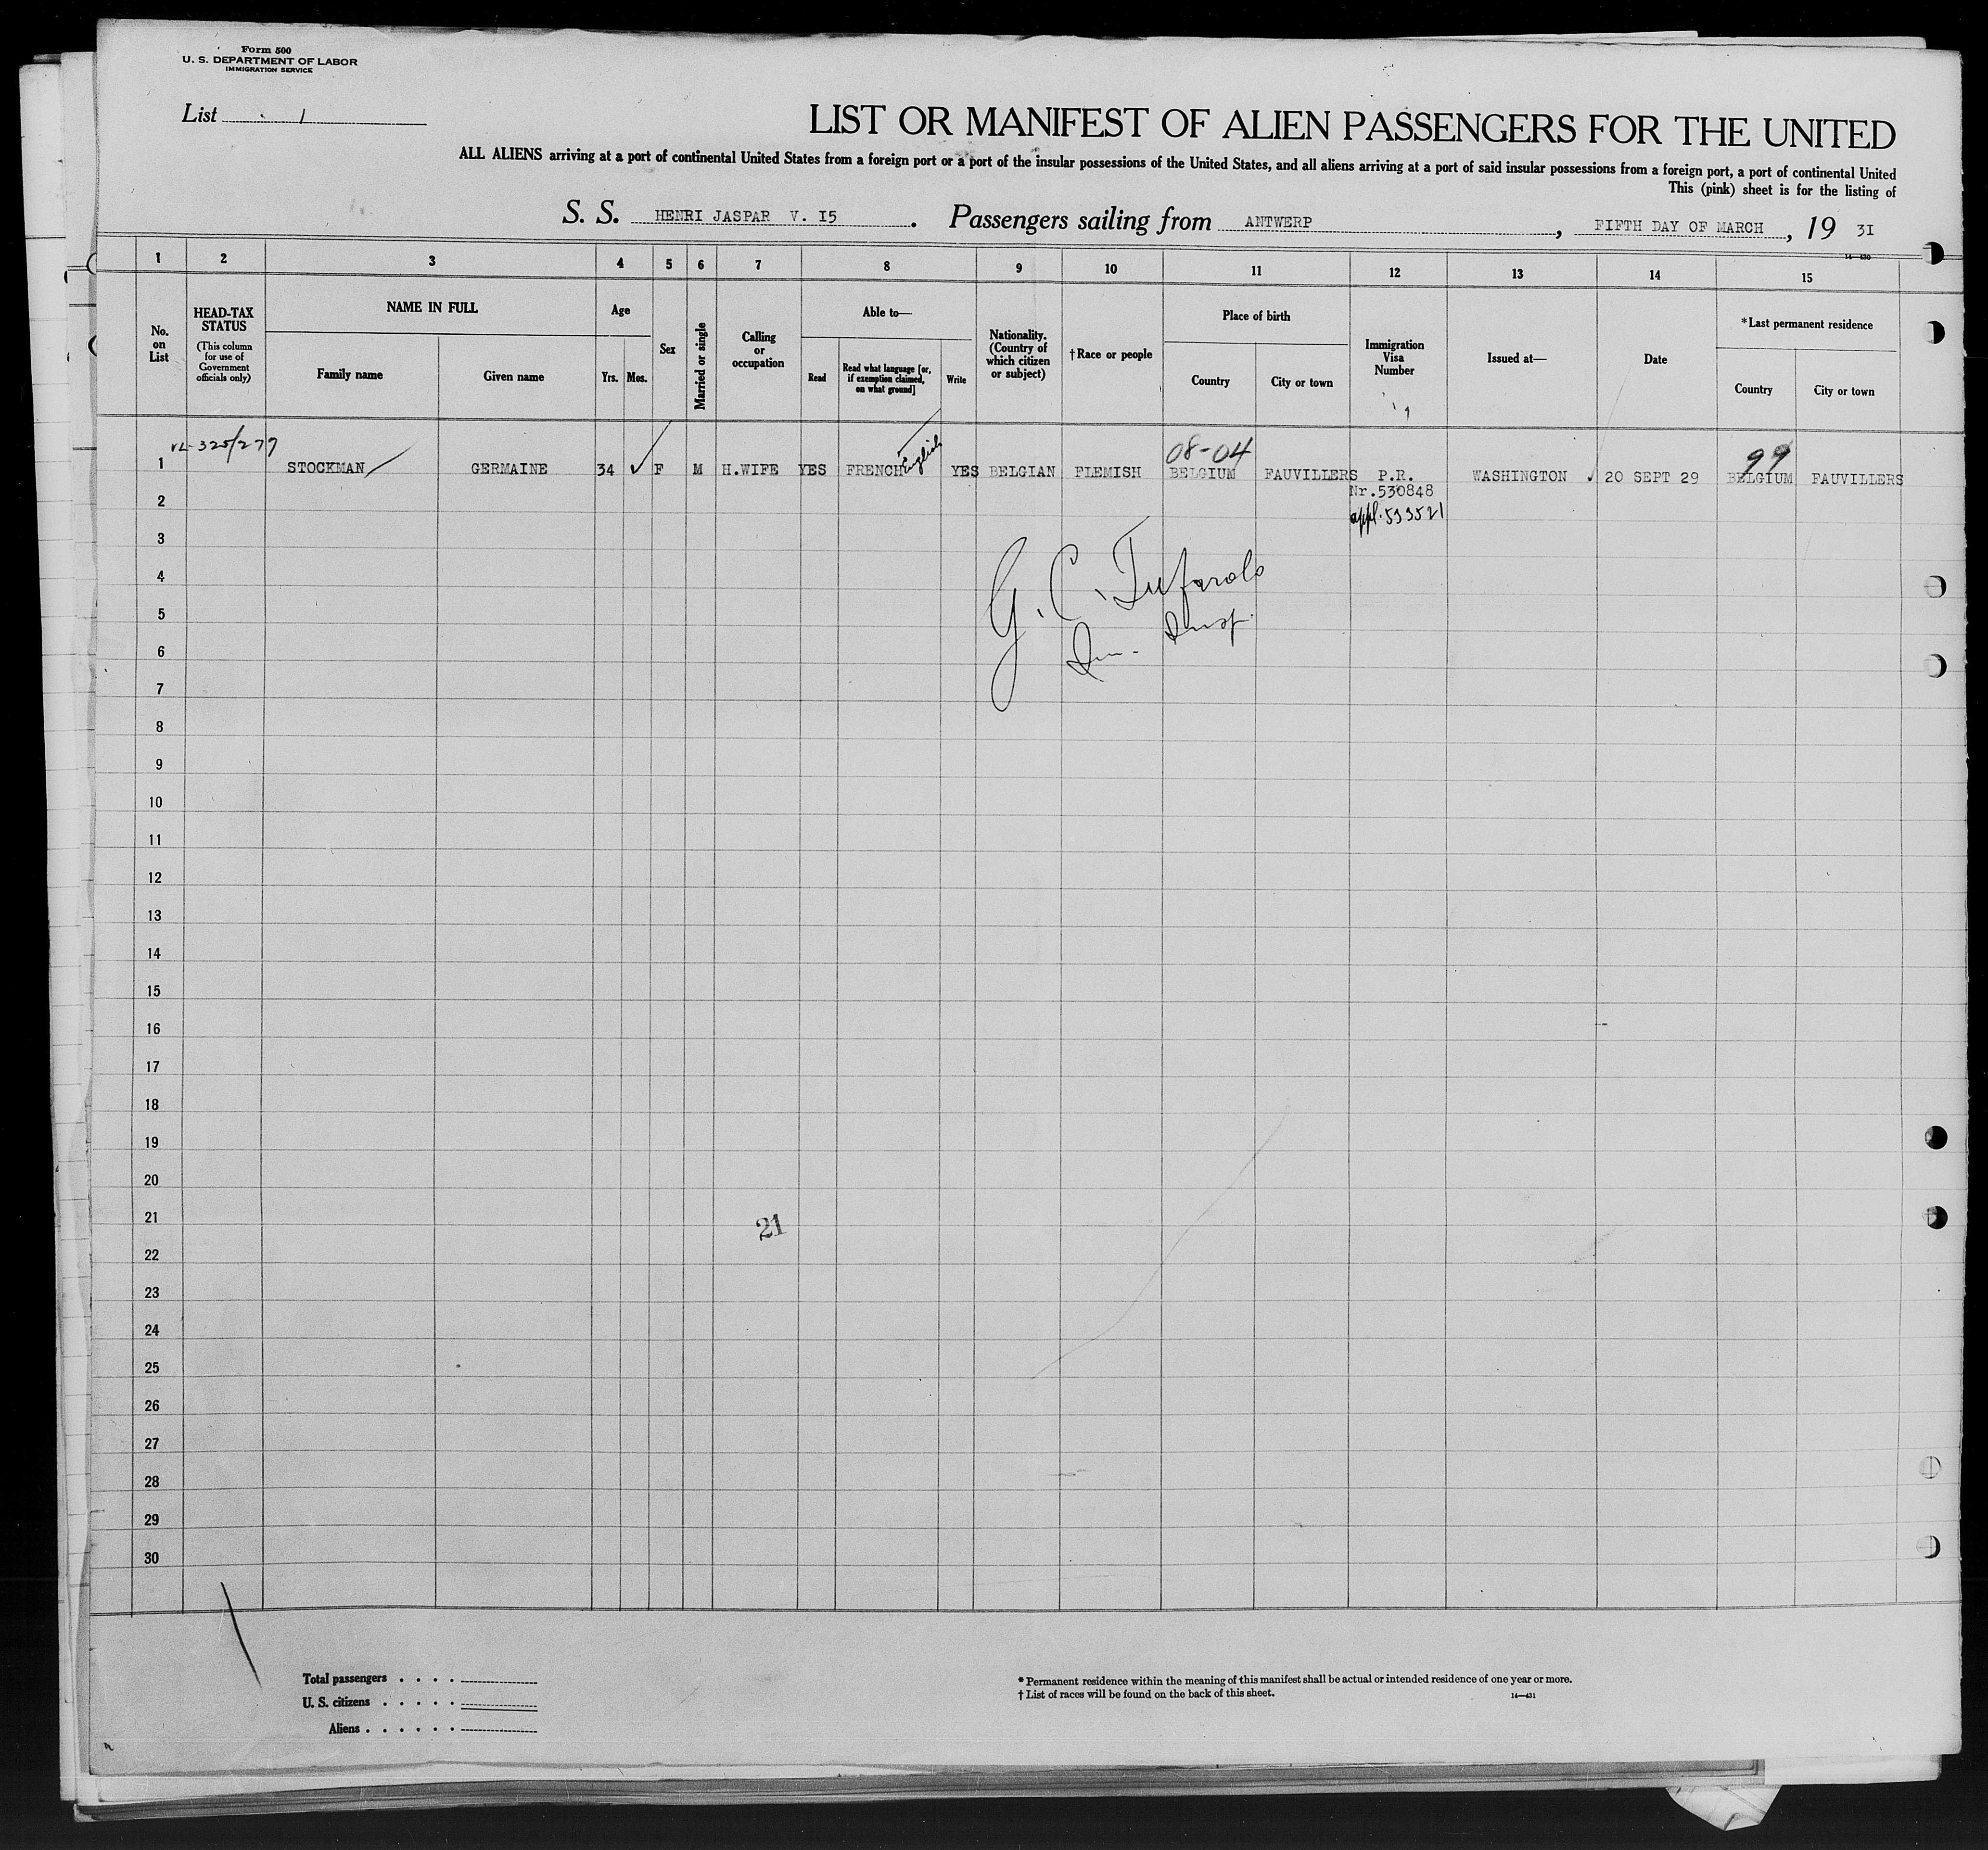 Form 500
U. S. DEPARTMENT OF LABOR
IMMIGRATION SERVICE
List 1
LIST OR MANIFEST OF ALIEN PASSENGERS FOR THE UNITED
ALL ALIENS arriving at a port of continental United States from a foreign port or a port of the insular possessions of the United States, and all aliens arriving at a port of said insular possessions from a foreign port, a port of continental United
This (pink) sheet is for the listing of
S. S. HENRI JASPAR V. I5 . Passengers sailing from ANTWERP , FIFTH DAY OF MARCH , 19 3I
14—430
1 2 3 4 5 6 7 8 9 10 11 12 13 14 15
No. on List
HEAD-TAX STATUS
(This column for use of Government officials only)
NAME IN FULL
Family name
Given name
Age
Yrs. Mos.
Sex
Married or single
Calling or occupation
Able to—
Read
Read what language [or, if exemption claimed, on what ground]
Write
Nationality. (Country of which citizen or subject)
†Race or people
Place of birth
Country
City or town
Immigration Visa Number
Issued at—
Date
*Last permanent residence
Country
City or town
325/277
English
08-04
99
1 STOCKMAN GERMAINE 34 ✓ F M H.WIFE YES FRENCH YES BELGIAN FLEMISH BELGIUM FAUVILLERS P.R. WASHINGTON 20 SEPT 29 BELGIUM FAUVILLERS
2 Nr.530848
appl. 533521
3
4
G. C. Tufarolo
5
Im. Insp.
6
7
8
9
10
11
12
13
14
15
16
17
18
19
20
21
21
22
23
24
25
26
27
28
29
30
Total passengers . . . .
U. S. citizens . . . . .
Aliens . . . . . .
* Permanent residence within the meaning of this manifest shall be actual or intended residence of one year or more.
† List of races will be found on the back of this sheet.
14—431